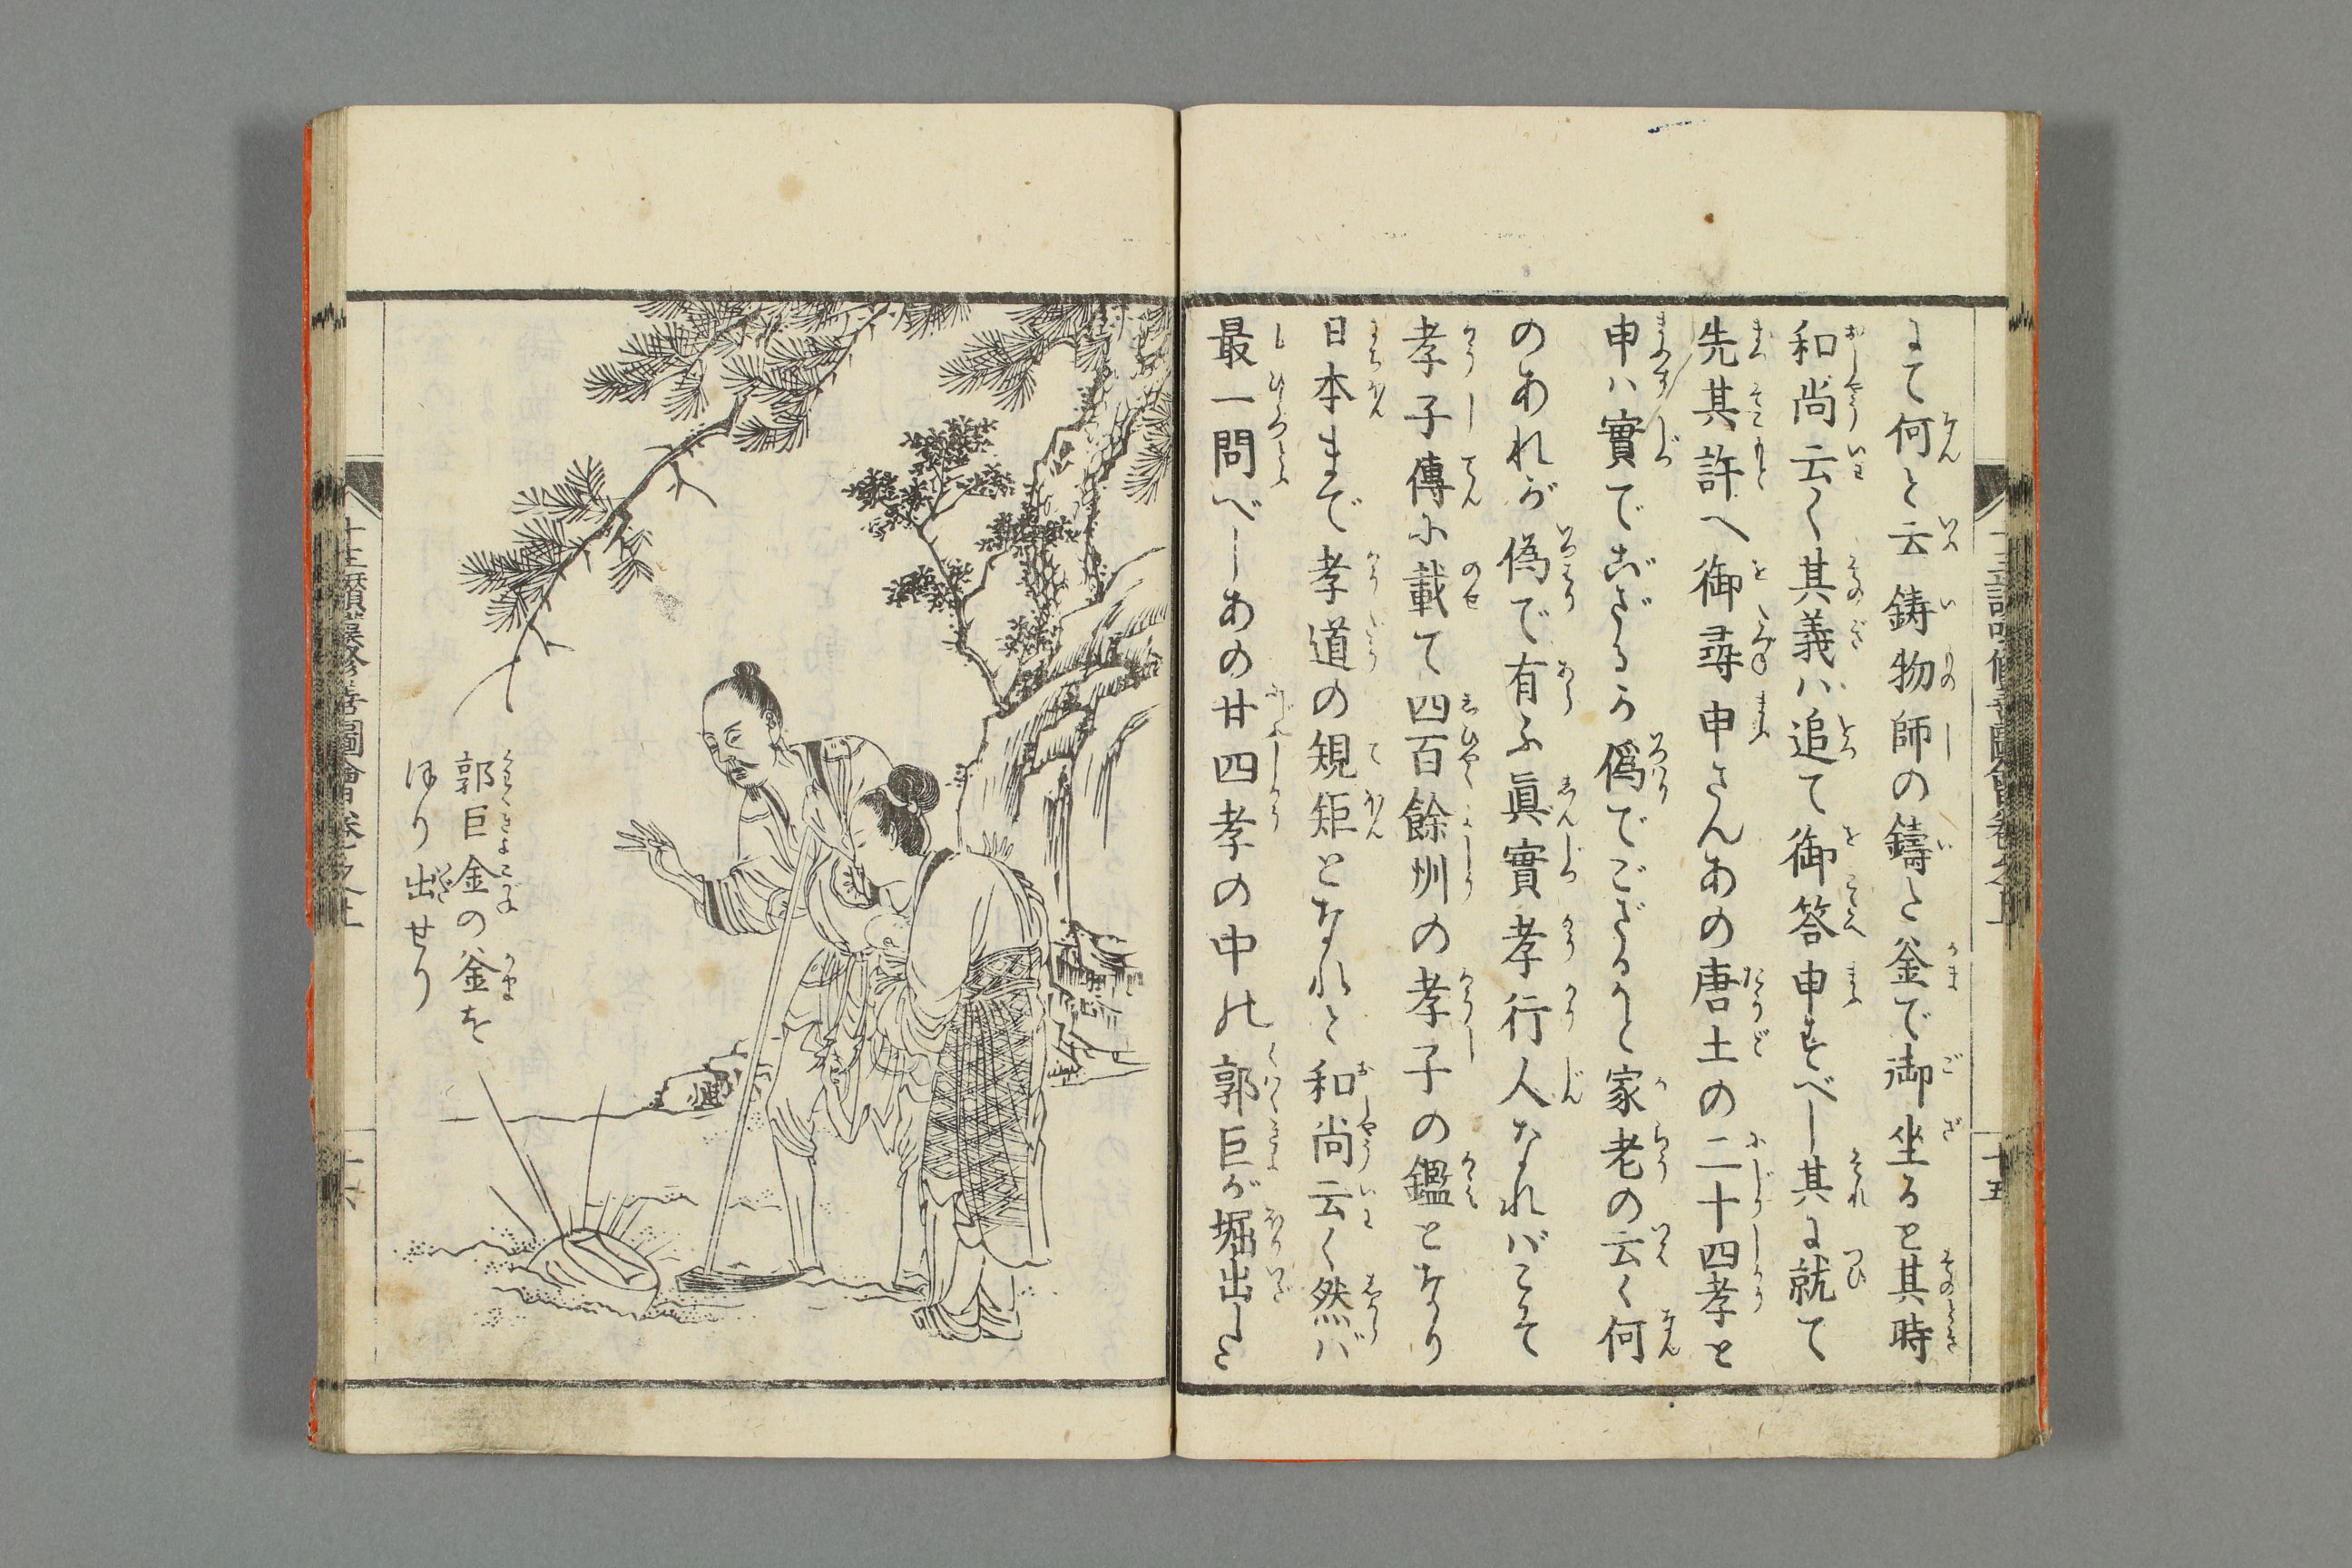 にて何と云鋳物師の鋳た釜で御坐ると其時
和尚云く其義ハ追て御答申すべし其に就て
先其許へ御尋申さんあの唐土の二十四孝と
申ハ實でござるか偽でござるかと家老の云く何
のあれが偽で有ふ眞實孝行人なれバこそ
孝子傳に載て四百餘州の孝子の鑑となり
日本まで孝道の規矩となれと和尚云く然バ
最一問べしあの廿四孝の中の郭巨が堀出した
郭巨金の釜を
ほり出せり
十五
十六